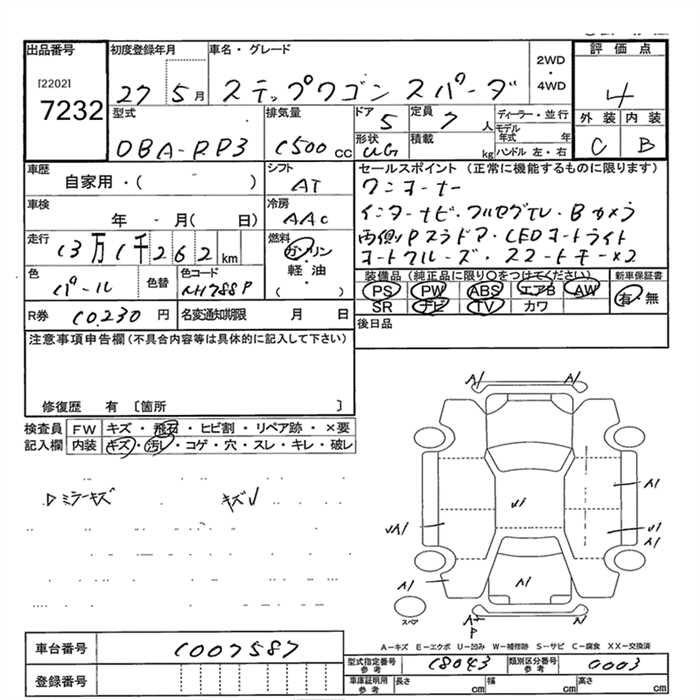 出品番号 初度登録年月 車名・グレード 2WD・4WD 評価点
[2202]
7232 27 5月 ステップワゴン スパーダ 4
型式 排気量 ドア 5 定員 7人 ディーラー・並行 外装 内装
DBA-RP3 1500cc 形状 UG 積載 kg モデル年式 年 ハンドル 左・右 C B
車歴 自家用・( ) シフト AT セールスポイント (正常に機能するものに限ります)
ワンオーナー
車検 年 - 月( 日) 冷房 AAC インターナビ・フルセグTV・Bカメラ
走行 13万1千262km 燃料 ガソリン・軽油・( ) 両側Pスラドア・LEDオートライト
オートクルーズ・スマートキー×2
色 パール 色替 色コード NH788P 装備品 (純正品に限り〇をつけてください) 新車保証書
PS PW ABS エアB AW 有・無
SR ナビ TV カワ
R券 10.230円 名変通知期限 月 日 後日品
注意事項申告欄(不具合内容等は具体的に記入して下さい)
修復歴 有 〔箇所 〕
検査員 FW キズ・飛石・ヒビ割・リペア跡・×要
記入欄 内装 キズ・汚レ・コゲ・穴・スレ・キレ・破レ
Dミラーキズ キズU
A1 A1
A1
U1
UA1 U1
A1
A1 A1
スペア A2 A1
P
A-キズ E-エクボ U-凹み W-補修跡 S-サビ C-腐食 XX-交換済
車台番号 1007587
型式指定番号 参考 18043 類別区分番号 参考 0003
登録番号 車庫証明用 参考 長さ cm 幅 cm 高さ cm